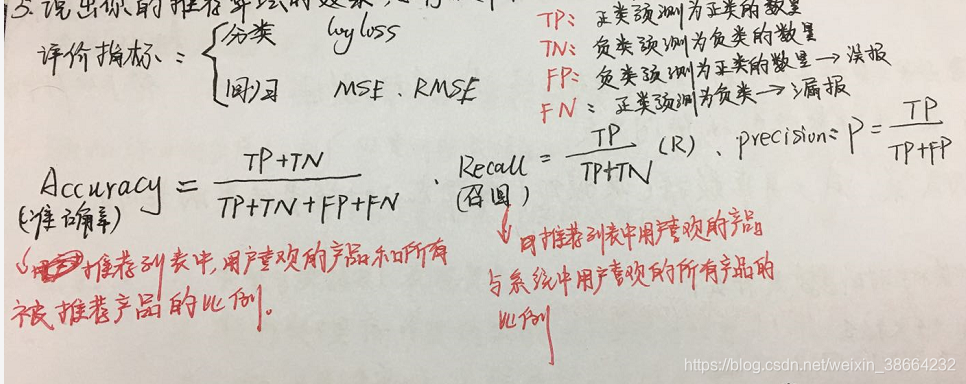 5. 说出你的推荐算法的效果,
评价指标: 分类 logloss
回归 MSE、RMSE
TP: 正类预测为正类的数量
TN: 负类预测为负类的数量
FP: 负类预测为正类的数量→误报
FN: 正类预测为负类→漏报
Accuracy = TP+TN / TP+TN+FP+FN 、 Recall = TP / TP+TN (R) 、 precision= P = TP / TP+FP
(准确率) (召回)
推荐列表中,用户喜欢的产品和所有
被推荐产品的比例。
推荐列表中用户喜欢的产品
与系统中用户喜欢的所有产品的
比例
https://blog.csdn.net/weixin_38664232